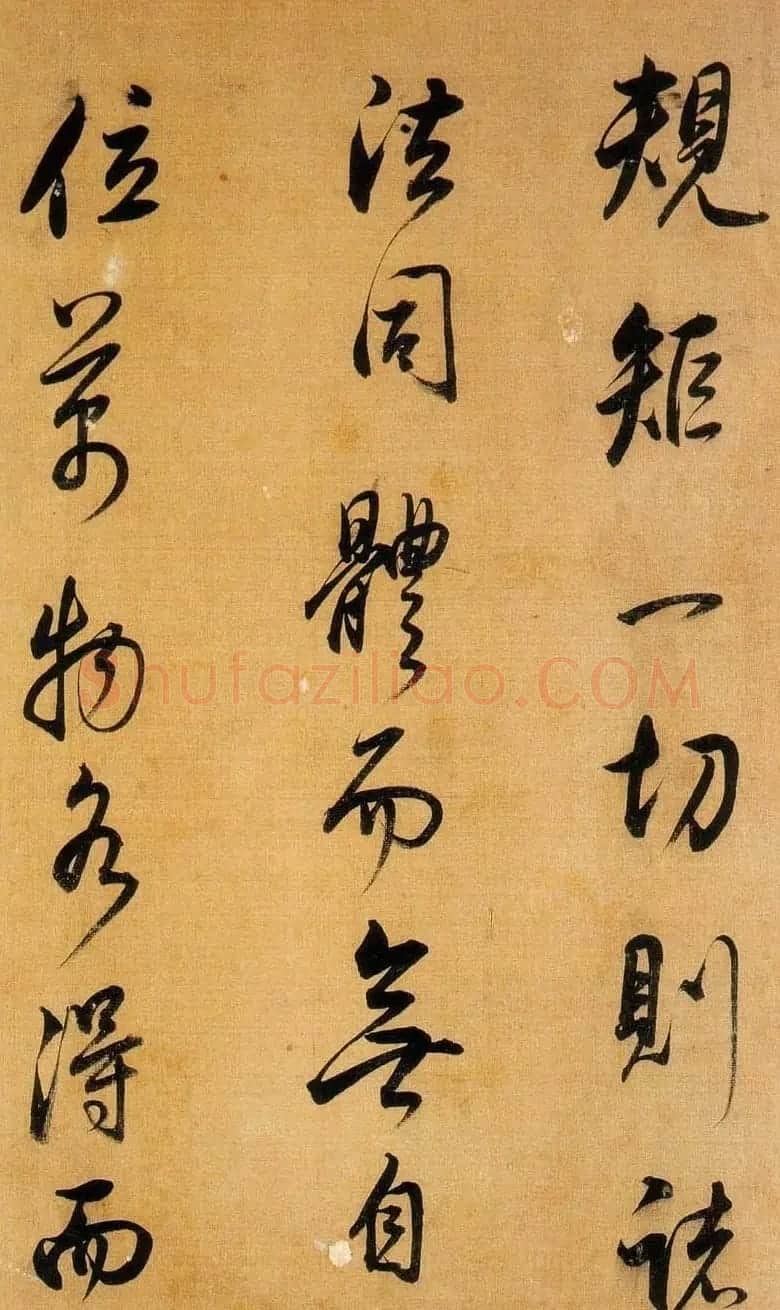 規矩一切則諸
法同體而無自
位萬物各得而
Shufaziliao.COM